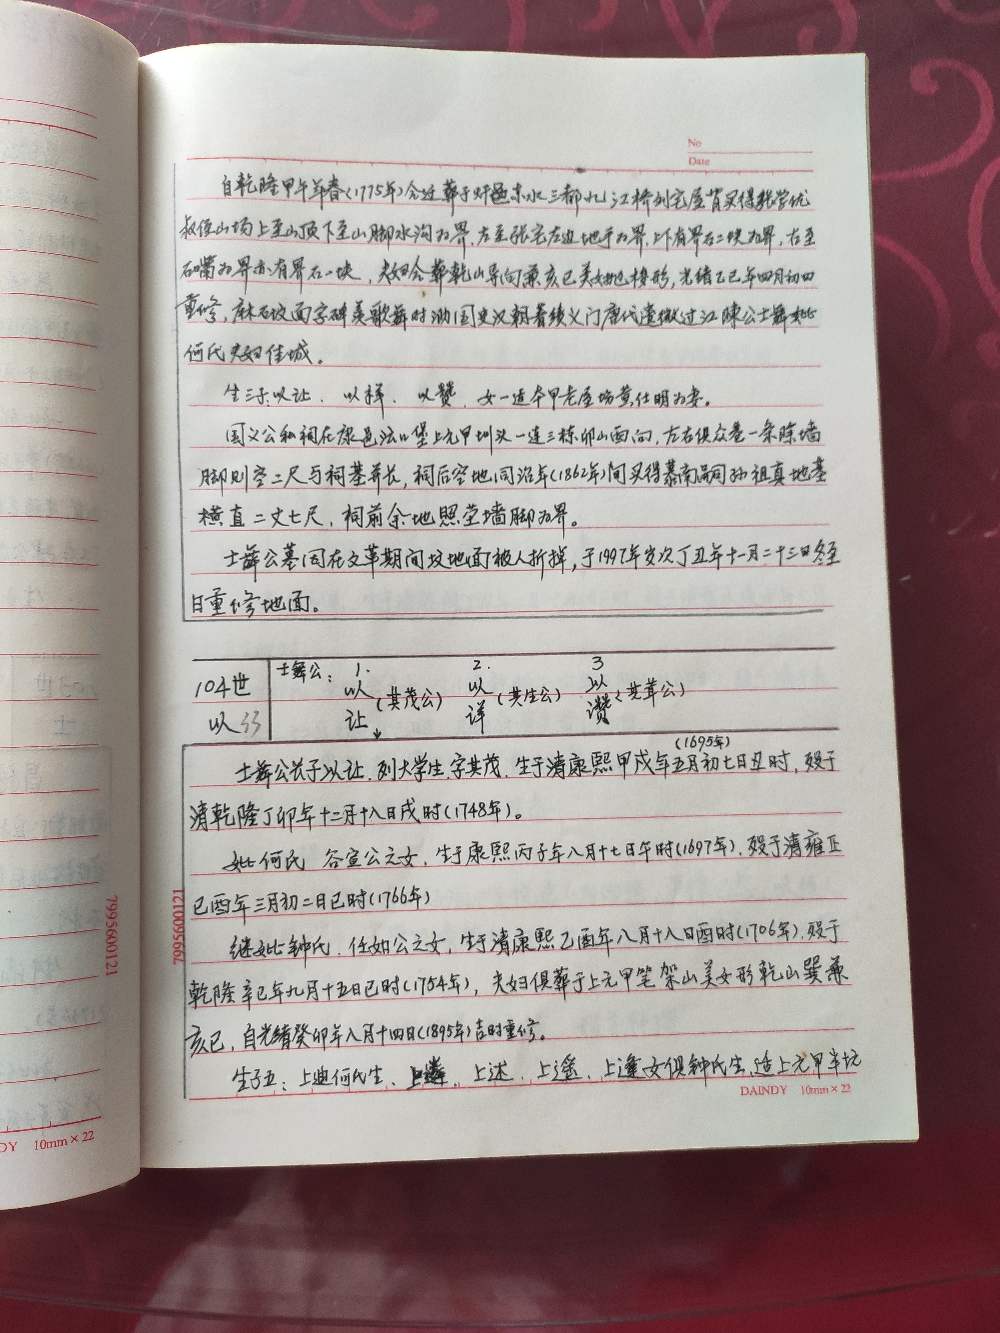 No
Date
自乾隆甲午年春(1775年)合迁葬于 邑东水三都九江桥刘宅屋背买得张学优
叔侄山场上至山顶下至山脚水沟为界，左至张宅左边地平为界，上下有界石二块为界，右至
石嘴为界亦有界石一块，夫妇合葬乾山巽向兼亥巳美女抛梭形，光绪乙巳年四月初四
重修，麻石坟面字碑 歌舞时 国史汉朝 义门唐代远 过江陈公士舞妣
何氏夫妇佳城。
生三子：以让、以祥、以赞，女一适本甲老屋场 仕明为妻。
国义公私祠在 邑 口堡上元甲圳头一连三栋卯山酉向，左右俱众巷一条除墙
脚则空二尺与祠基并长，祠后空地同治年(1862年)间买得 南 祖真地基
横直二丈七尺，祠前余地照堂墙脚为界。
士舞公墓同在文革期间坟地面被人折掉，于1997年岁次丁丑年十一月二十三日冬至
日重修地面。
104世
以
士舞公：
1. 以让 (其茂公)
2. 以详 (其生公)
3 以讚 (其 公)
(1695年)
士舞公长子以让，列大学生，字其茂，生于清康熙甲戌年五月初七日丑时，殁于
清乾隆丁卯年十二月十八日戌时(1748年)。
妣何氏 谷宣公之女，生于康熙丙子年八月十七日午时(1697年)，殁于清雍正
已酉年三月初二日已时(1766年)
继妣钟氏，任如公之女，生于清康熙乙酉年八月十八日酉时(1706年)，殁于
乾隆辛巳年九月十五日已时(1754年)，夫妇俱葬于上元甲笔架山美女形乾山巽兼
亥已，自光绪癸卯年八月十四日(1895年)吉时重修。
生子五：上迪何氏生、上遴、上述、上遥、上逢女俱钟氏生，适上元甲羊坑
7995600121
7995600121
DAINDY 10mm×22
DY 10mm×22